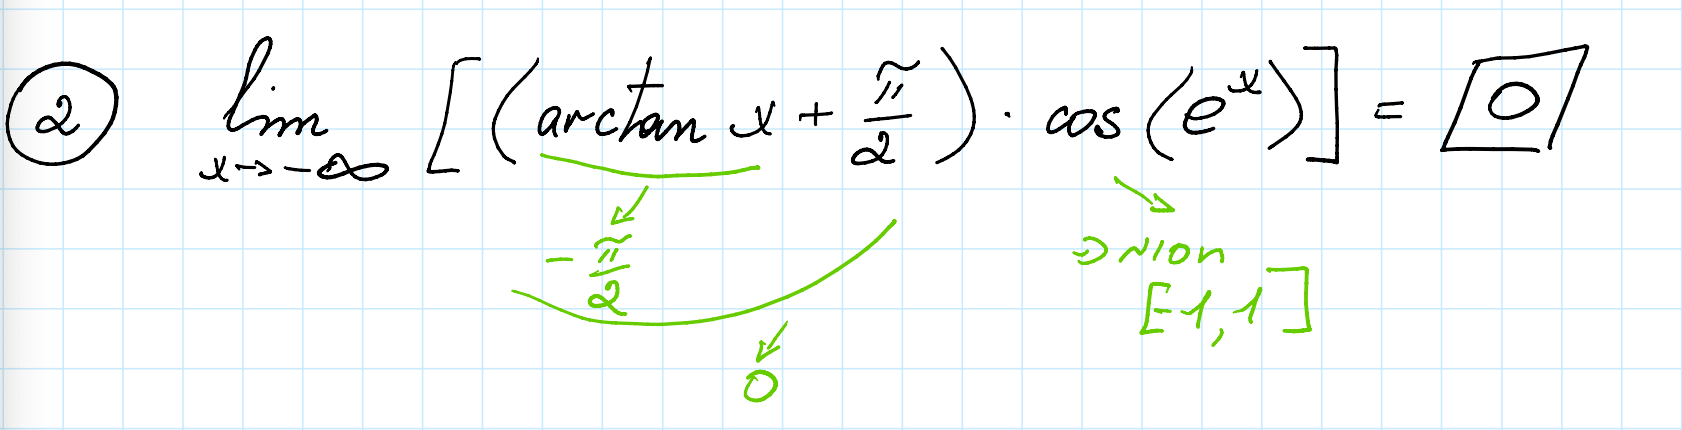 ② lim [(arctan x + π/2) · cos(eˣ)] = 0
x→-∞
-π/2
חסומה
[-1,1]
0